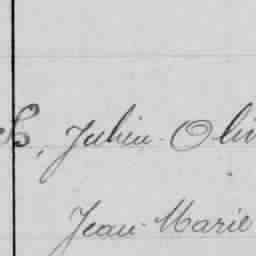 Julien Oliv
Jean-Marie